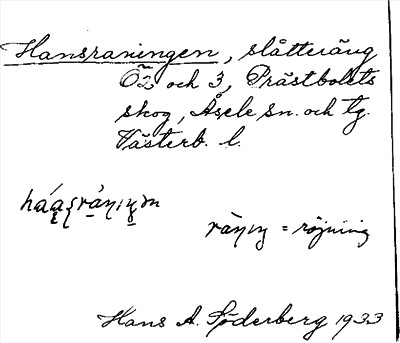 Hansraningen, slåtteräng
Ö2 och 3, Prästbolets
skog, Åsele sn. och tg.
Västerb. l.
= röjning
Hans A. Söderberg 1933